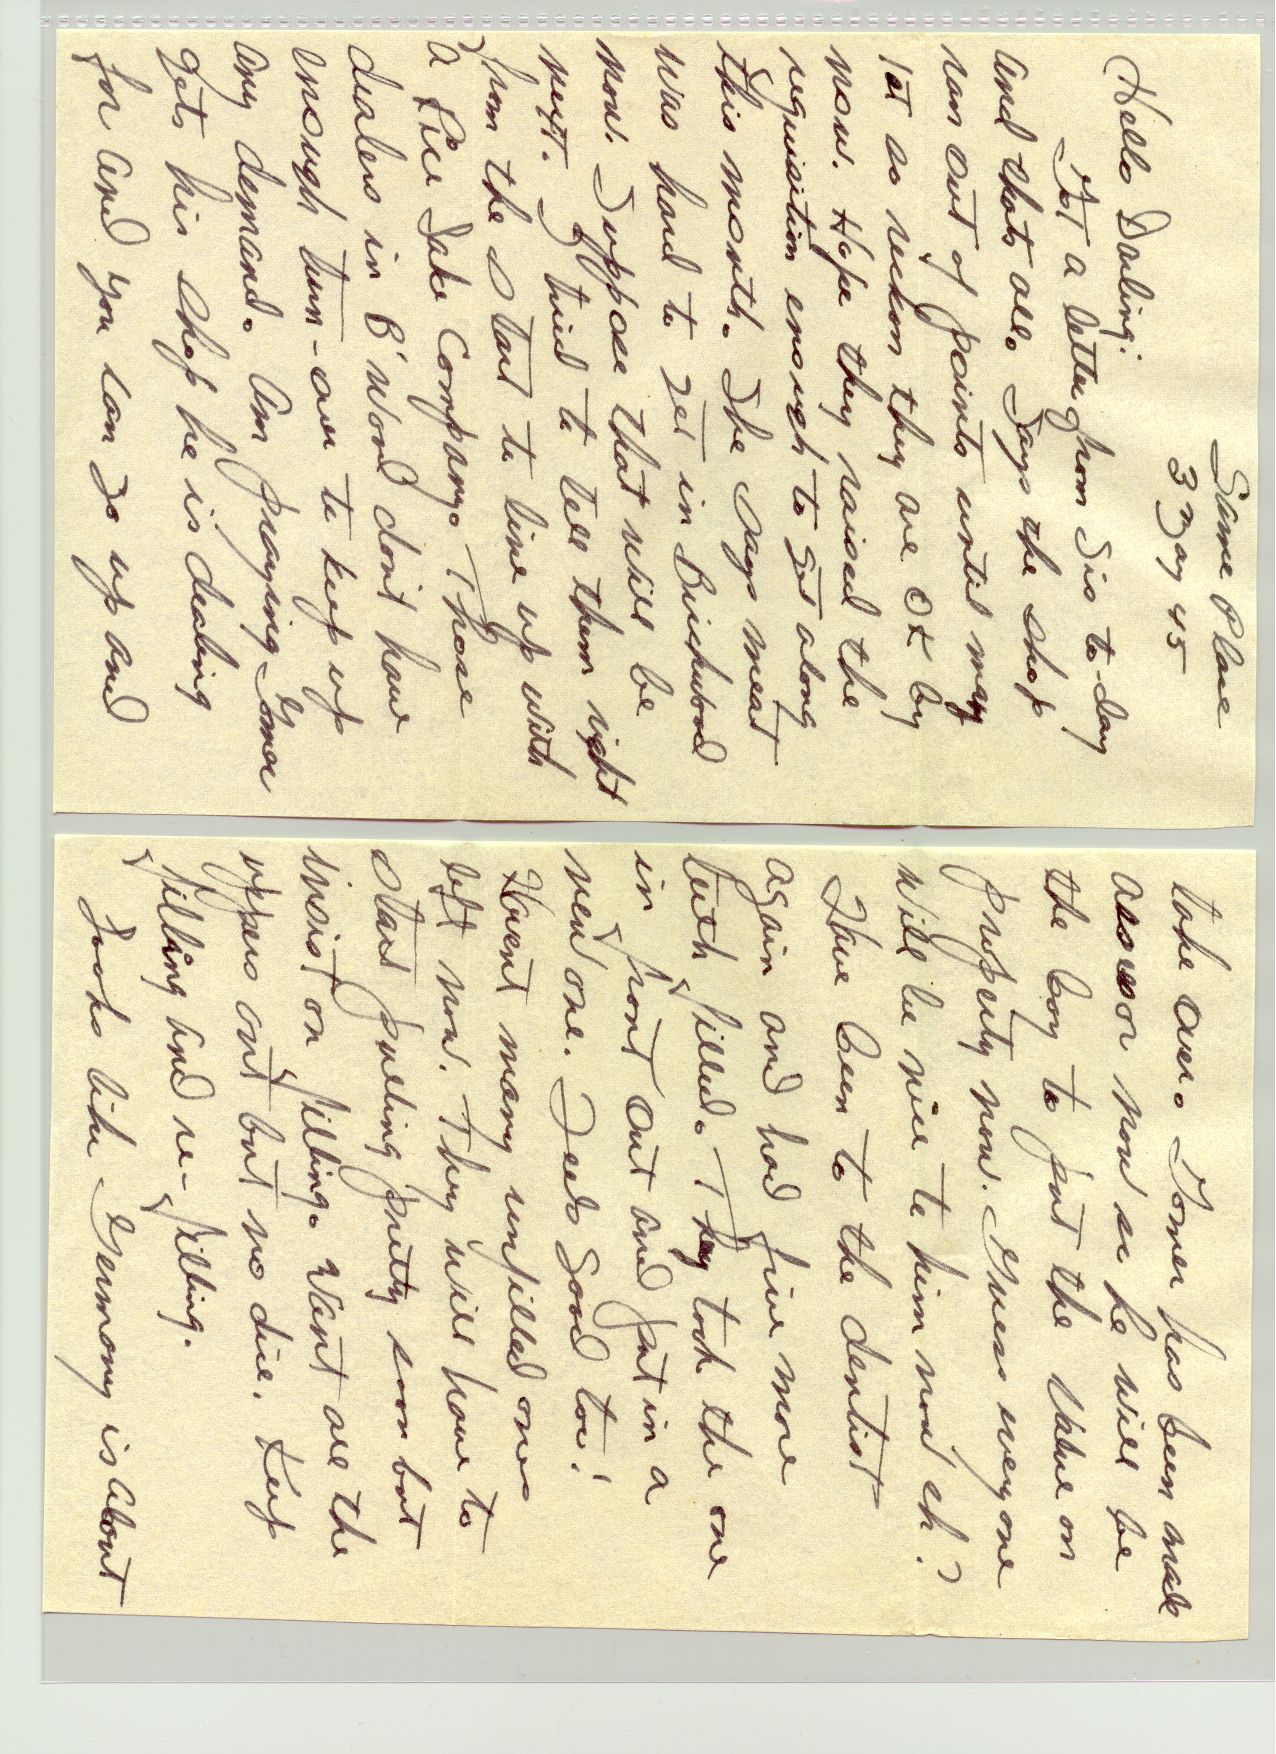 Same Place
3 May 45
Hello Darling:
Got a letter from Sis to-day
and thats all. Says the shop
ran out of points until may
1st so reckon they are OK by
now. Hope they raised the
requisition enough to get along
this month. She says meat
was hard to get in Birchwood
now. Suppose that will be
next. I tried to tell them right
from the start to line up with
a Rice Lake Company. Those
dealers in B'wood don't have
enough turn-over to keep up
any demand. Am praying Gomer
gets his shop he is dealing
for and you can go up and
take over. Gomer has been made
assessor now so he will be
the boy to put the value on
property now. Guess every one
will be nice to him now eh?
Have been to the dentist
again and had five more
teeth filled. They took the one
in front out and put in a
new one. Feels good too!
Havent many unfilled ones
left now. They will have to
start pulling pretty soon but
insist on filling. Want all the
uppers out but no dice. Keep
filling and re-filling.
Looks like Germany is about